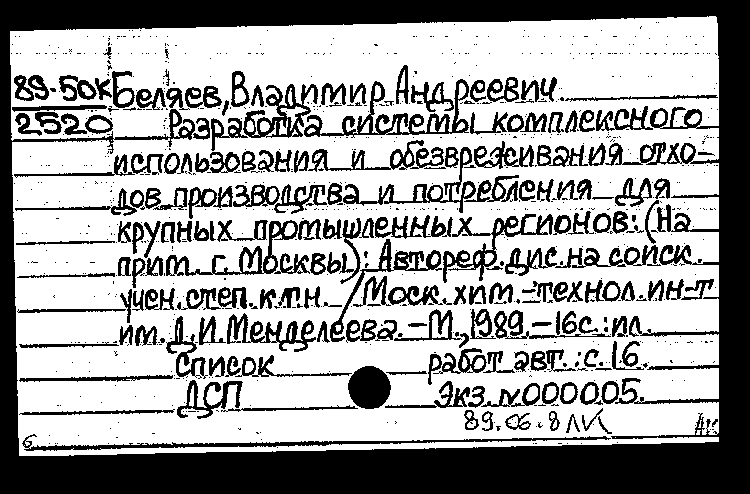 89-50К Беляев, Владимир Андреевич.
2520 Разработка системы комплексного
использования и обезвреживания отхо-
дов производства и потребления для
крупных промышленных регионов: (На
прим. г. Москвы): Автореф. дис. на соиск.
учен. степ. к.т.н. / Моск. хим.-технол. ин-т
им. Д.И. Менделеева. - М., 1989. - 16с.: ил.
Список работ авт.: с. 16.
ДСП Экз. N000005.
89.06.8